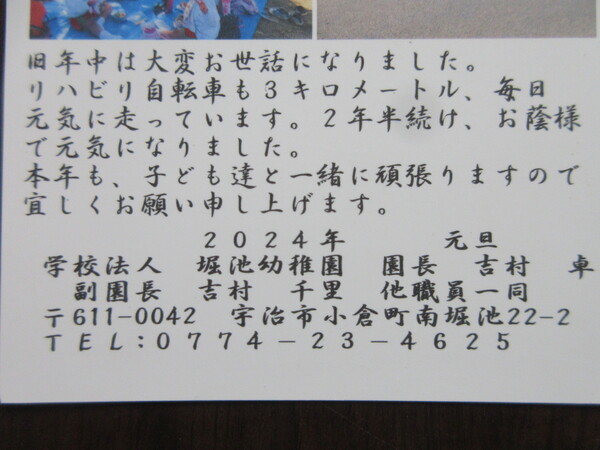 旧年中は大変お世話になりました。
リハビリ自転車も３キロメートル、毎日
元気に走っています。２年半続け、お蔭様
で元気になりました。
本年も、子ども達と一緒に頑張りますので
宜しくお願い申し上げます。
２０２４年　元旦
学校法人　堀池幼稚園　園長　吉村　卓
副園長　吉村　千里　他職員一同
〒611-0042　宇治市小倉町南堀池22-2
ＴＥＬ：０７７４－２３－４６２５